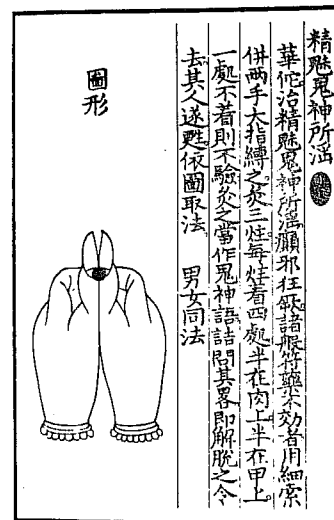 精魅鬼神所淫
華佗治精魅鬼神所淫癲邪狂厥諸般符藥不効者用細索
併兩手大指縛之灸三炷每炷着四處半在肉上半在甲上
一處不着則不驗灸之當作鬼神語詰問其畧即解脫之令
去其人遂甦依圖取法 男女同法
圖形